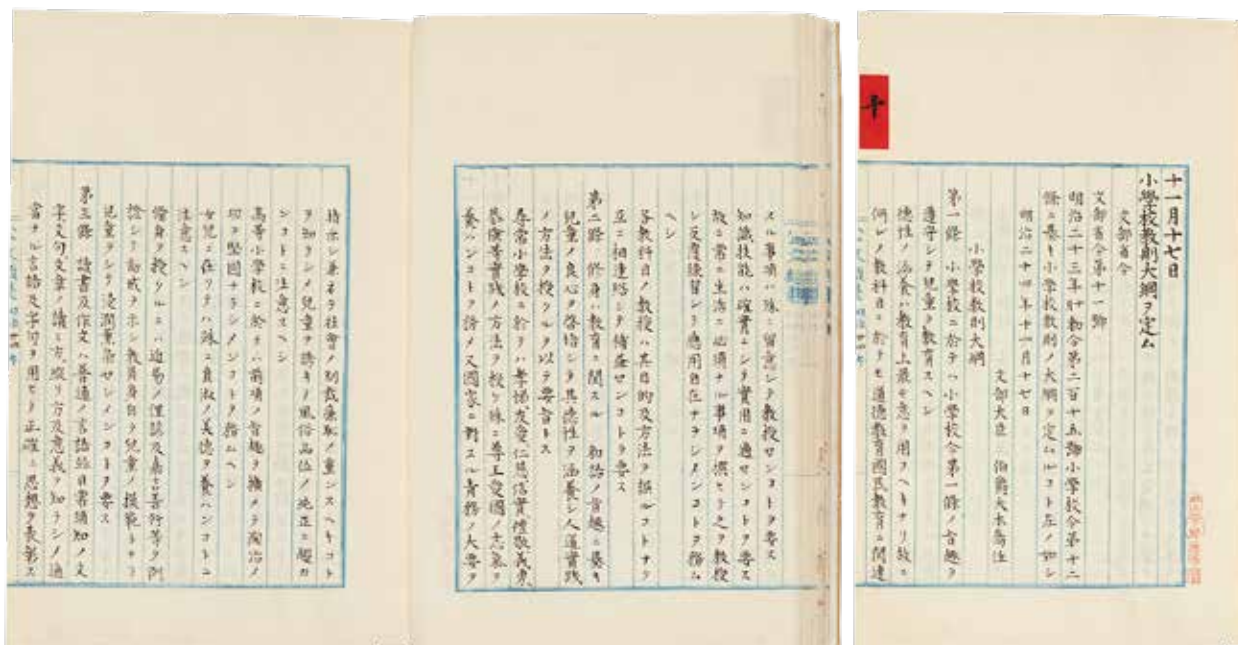 十一月十七日
小學校敎則大綱ヲ定ム
文部省令
文部省令第十一號
明治二十三年十月勅令第二百十五號小學校令第十二
條ニ基キ小學校敎則ノ大綱ヲ定ムルコト左ノ如シ
明治二十四年十一月十七日
文部大臣 伯爵大木喬任
小學校敎則大綱
第一條 小學校ニ於テハ小學校令第一條ノ旨趣ヲ
遵守シテ兒童ヲ敎育スヘシ
德性ノ涵養ハ敎育上最モ意ヲ用フヘキナリ故ニ
何レノ敎科目ニ於テモ道德敎育國民敎育ニ關連
スル事項ハ殊ニ留意シテ敎授センコトヲ要ス
知識技能ハ確實ニシテ實用ニ適センコトヲ要ス
故ニ常ニ生活ニ必須ナル事項ヲ撰ヒテ之ヲ敎授
シ反覆練習シテ應用自在ナラシメンコトヲ務ム
ヘシ
各敎科目ノ敎授ハ其目的及方法ヲ誤ルコトナク
互ニ相連絡シテ補益センコトヲ要ス
第二條 修身ハ敎育ニ關スル 勅語ノ旨趣ニ基キ
兒童ノ良心ヲ啓培シテ其德性ヲ涵養シ人道實踐
ノ方法ヲ授クルヲ以テ要旨トス
尋常小學校ニ於テハ孝悌友愛仁慈信實禮敬義勇
恭儉等實踐ノ方法ヲ授ケ殊ニ尊王愛國ノ志氣ヲ
養ハンコトヲ務メ又國家ニ對スル責務ノ大要ヲ
指示シ兼ネテ社會ノ制裁廉恥ノ重ンスヘキコト
ヲ知ラシメ兒童ヲ誘キテ風俗品位ノ純正ニ趨カ
ンコトニ注意スヘシ
高等小學校ニ於テハ前項ノ旨趣ヲ擴メテ陶冶ノ
功ヲ堅固ナラシメンコトヲ務ムヘシ
女兒ニ在リテハ殊ニ貞淑ノ美德ヲ養ハンコトニ
注意スヘシ
修身ヲ授クルニハ近易ノ俚諺及嘉言善行等ヲ例
證シテ勸戒ヲ示シ敎員身自ラ兒童ノ模範トナリ
兒童ヲシテ浸潤薰染セシメンコトヲ要ス
第三條 讀書及作文ハ普通ノ言語竝日常須知ノ文
字文句文章ノ讀ミ方綴リ方及意義ヲ知ラシメ適
當ナル言語及字句ヲ用ヒテ正確ニ思想ヲ表彰ス